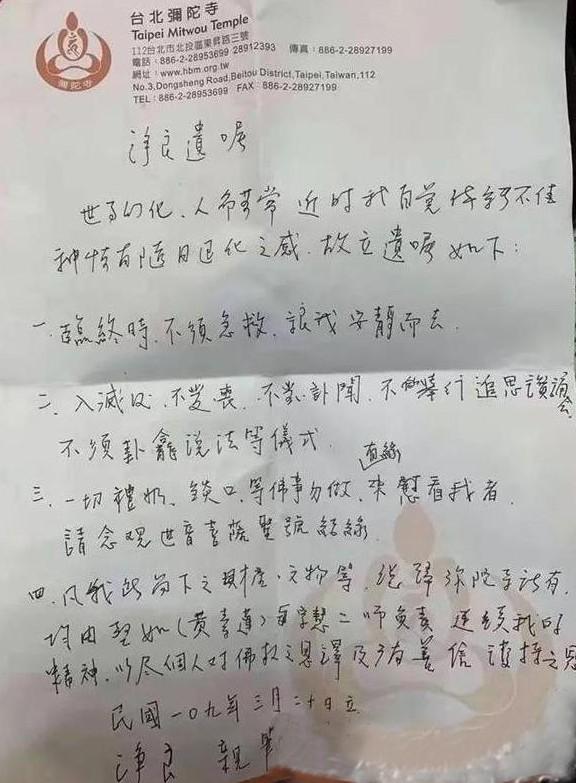 台北彌陀寺
Taipei Mitwou Temple
112台北市北投區東昇路三號
電話：886-2-28953699 28912393 傳真：886-2-28927199
網址：www.hbm.org.tw
No.3,Dongsheng Road,Beitou District,Taipei,Taiwan,112
TEL：886-2-28953699 FAX：886-2-28927199
彌陀寺
淨良遺囑
世事幻化、人命無常 近时我自覺体力不佳
種情有隨日退化之感．故立遺囑如下：
一、臨終時、不須急救、讓我安静而去．
二、入滅后、不发喪、不發訃聞、不舉行追思讚頌会
不須封龕说法等儀式．
三、一切禮懺、燄口、等佛事勿做、來看我者
直緣
請念观世音菩薩聖號結緣．
四、凡我所留下之財產、文物等，總歸弥陀寺所有，
均由（黄）二师负责 延續我的
精神、以尽個人对佛教之恩澤及所有善信護持之恩
民國一0九年三月二十日立
淨良 親筆